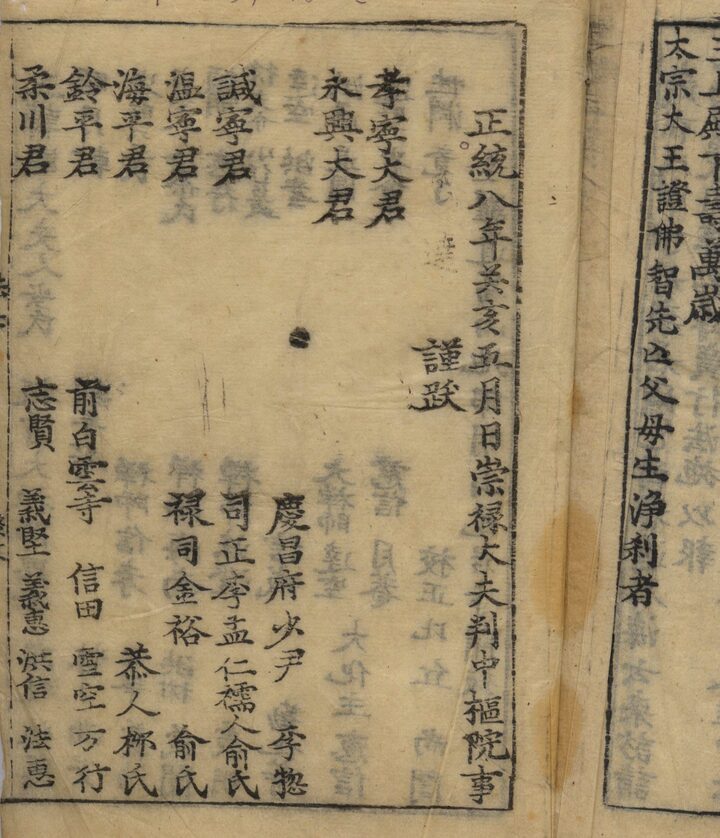 上殿下壽萬歲
太宗大王證佛智先亾父母生淨刹者
正統八年癸亥五月日崇禄大夫判中樞院事
謹跋
孝寧大君
永興大君
慶昌府少尹 李惣
諴寧君 司正李孟仁 孺人俞氏
溫寧君 禄司金裕 俞氏
海平君 恭人柳氏
鈴平君 前白雲寺 信田 雪空 万行
柔川君 志賢 義堅 義惠 洪信 法惠